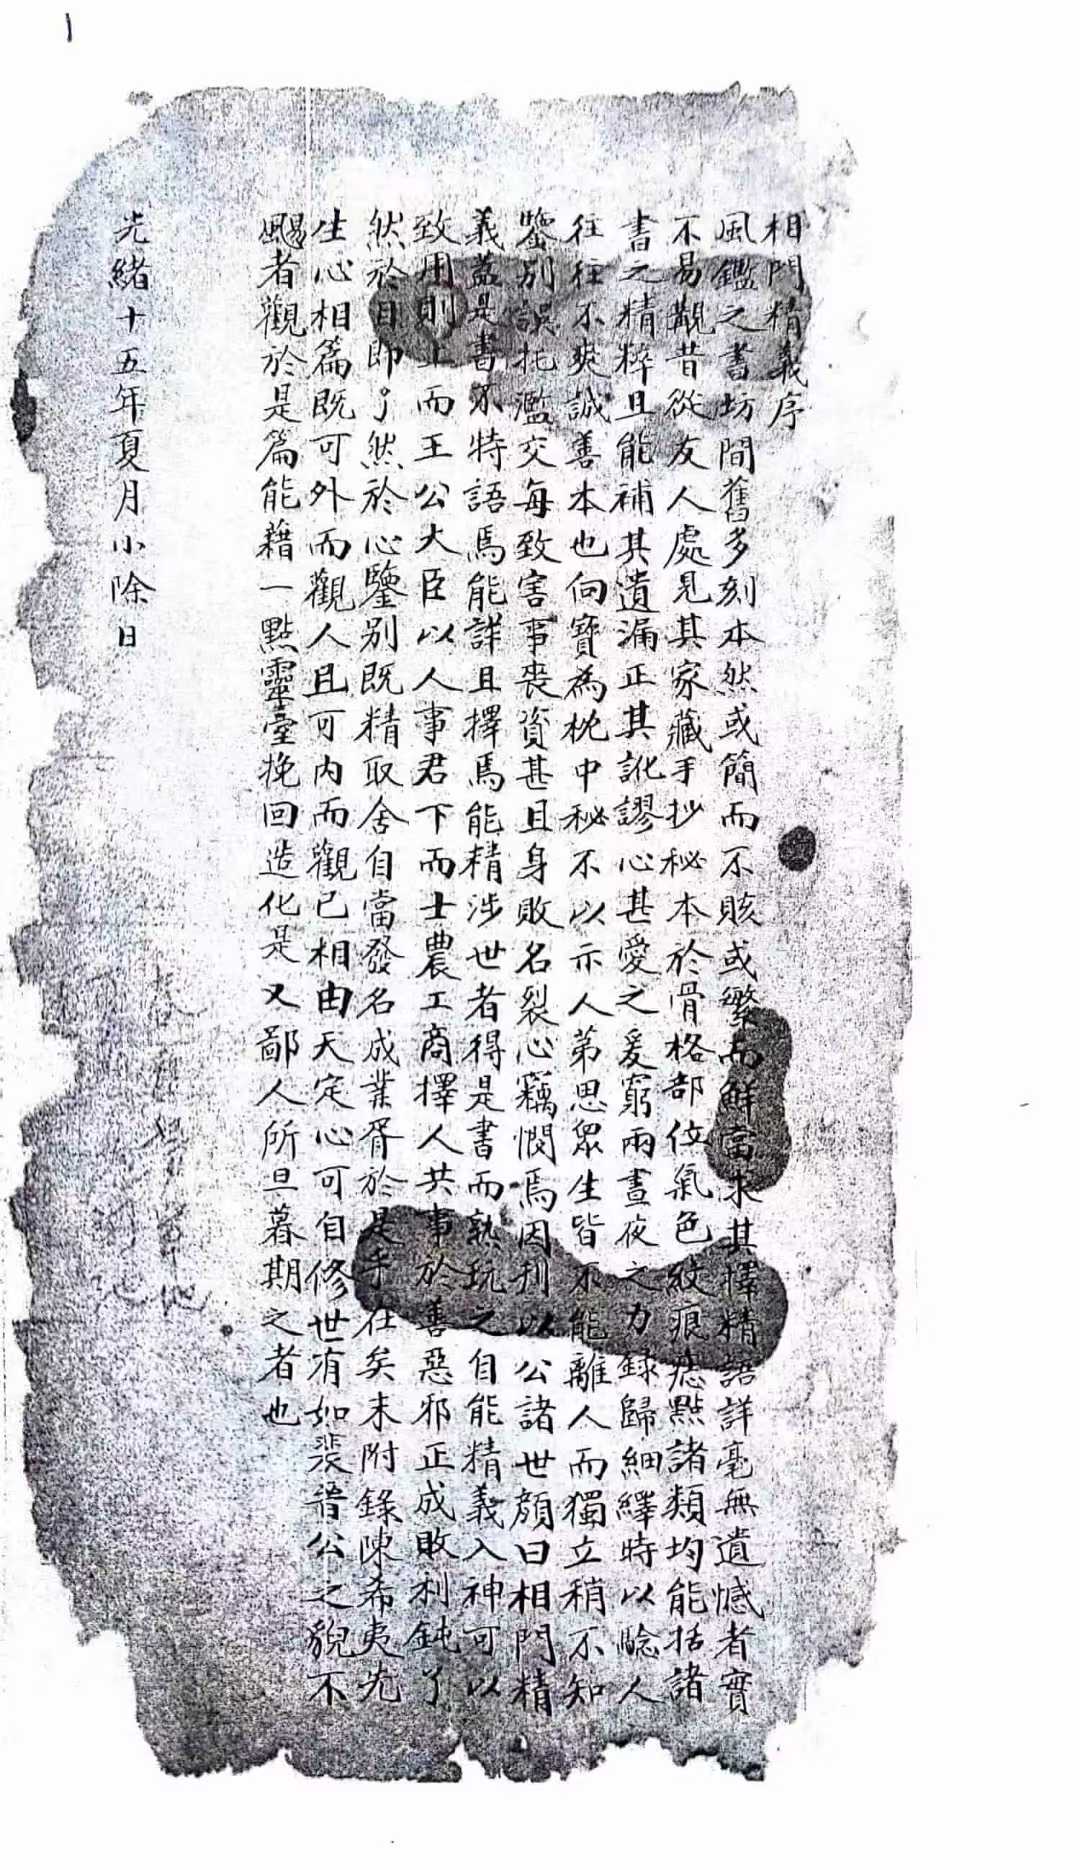 相門精義序
風鑑之書坊間舊多刻本然或簡而不賅或繁而鮮當求其擇精語詳毫無遺憾者實
不易覯昔從友人處見其家藏手抄秘本於骨格部位氣色紋痕痣點諸類均能括諸
書之精粹且能補其遺漏正其訛謬心甚愛之爰窮兩晝夜之力錄歸細繹時以驗人
往往不爽誠善本也向寶為枕中秘不以示人第思眾生皆不能離人而獨立稍不知
鑒別誤托濫交每致害事喪資甚且身敗名裂心竊憫焉因刊以公諸世顏曰相門精
義蓋是書不特語焉能詳且擇焉能精涉世者得是書而熟玩之自能精義入神可以
致用則上而王公大臣以人事君下而士農工商擇人共事於善惡邪正成敗利鈍了
然於目即了然於心鑒别既精取舍自當發名成業胥於是乎在矣末附錄陳希夷先
生心相篇既可外而觀人且可內而觀己相由天定心可自修世有如裴晉公之貌不
颺者觀於是篇能藉一點靈臺挽回造化是又鄙人所旦暮期之者也
光緒十五年夏月小除日